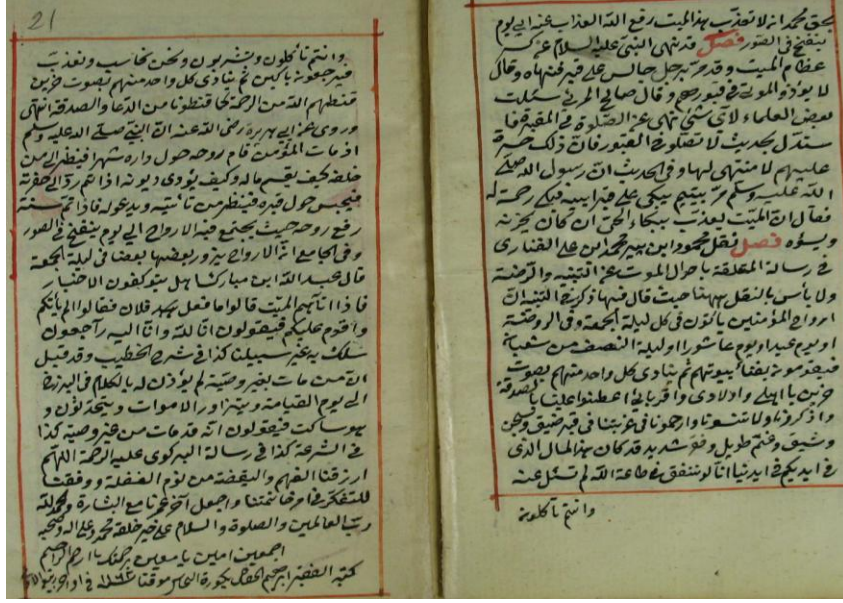 بحق محمد ان لا تعذب بهذا الميت رفع الله العذاب عنه الى يوم
ينفخ في الصور فصل قد نهى النبي عليه السلام عن كسر
عظام الميت وقد مر برجل جالس على قبر فنهاه وقال
لا يؤذوا الموتى في قبورهم وقال صالح المرني سئلت
بعض العلماء لاى شئ نهى عن الصلوة في المقبرة فا
ستدل بحديث لا تصلوا في القبور فان ذلك حسرة
عليهم لا منتهى لها وفي الحديث ان رسول الله صلى
الله عليه وسلم مر بيتيم يبكى على قبر ابيه فبكى رحمة له
فقال ان الميت ليعذب ببكاء الحى ان كان يحزنه
ويسؤه فصل نقل محمود ابن پير محمد ابن على الفنارى
في رسالة المعلقة باحوال الموت عن القنية والروضة
ولا بأس بالنقل ههنا حيث قال فيها ذكر في القنية ان
ارواح المؤمنين يأتون في كل ليلة الجمعة وفي الروضة
او يوم عيد او يوم عاشورا او ليلة النصف من شعبان
فيقومون بفناء بيوتهم ثم ينادى كل واحد منهم بصوت
حزين يا اهلى واولادى واقربائى اعطفوا علينا بالصدقة
واذكرونا ولا تنسونا وارحمونا في غربتنا في قبر ضيق وسجن
وثيق وغم طويل وخوف شديد قد كان هذا المال الذى
في ايديكم في ايدينا انا لو ننفق في طاعة الله لم نسئل عنه
وانتم تأكلون
21
وانتم تأكلون وتشربون ونحن نحاسب ونعذب
فيرجعون باكين ثم ينادى كل واحد منهم بصوت حزين
قنطهم الله من الرحمة كما قنطونا من الدعا والصدقة انتهى
وروى عن ابى هريرة رضى الله عنه ان النبى صلى الله عليه وسلم
اذ مات المؤمن قام روحه حول داره شهرا فينظر الى من
خلفه كيف يقسم ماله وكيف يؤدى ديونه اذا تم رد الى حفرته
فيجلس حول قبره فينظر من يأتيه ويدعو له فاذا تم سنة
رفع روحه حيث يجتمع فيه الارواح الى يوم ينفخ في الصور
وفي الجامع ان الارواح يزور بعضها بعضا في ليلة الجمعة
قال عبد الله ابن مبارك اهل يتوكفون الاخبار
فاذا اتاهم الميت قالوا ما فعل بهد فلان فقالوا الم يأتكم
وا قدم عليكم فيقولون انا لله وانا اليه راجعون
سلك به غير سبيلنا كذا في شرح الخطيب وقد قيل
ان من مات بغير وصية لم يؤذن له بالكلام في البرزخ
الى يوم القيامة ويتزاور الاموات ويتحدثون و
هو ساكت فيقولون انه قد مات من غير وصية كذا
في الشرعة كذا في رسالة البركوى عليه الرحمة اللهم
ارزقنا الفهم واليقظة من نوم الغفلة ووفقنا
للتفكر في امر خاتمتنا واجعل آخر عمرنا مع البشارة والحمد لله
رب العالمين والصلوة والسلام على خير خلقه محمد وعلى اله وصحبه
اجمعين امين يا معين برحمتك يا ارحم الراحمين
كتبه الفقير ابراهيم في اواخر